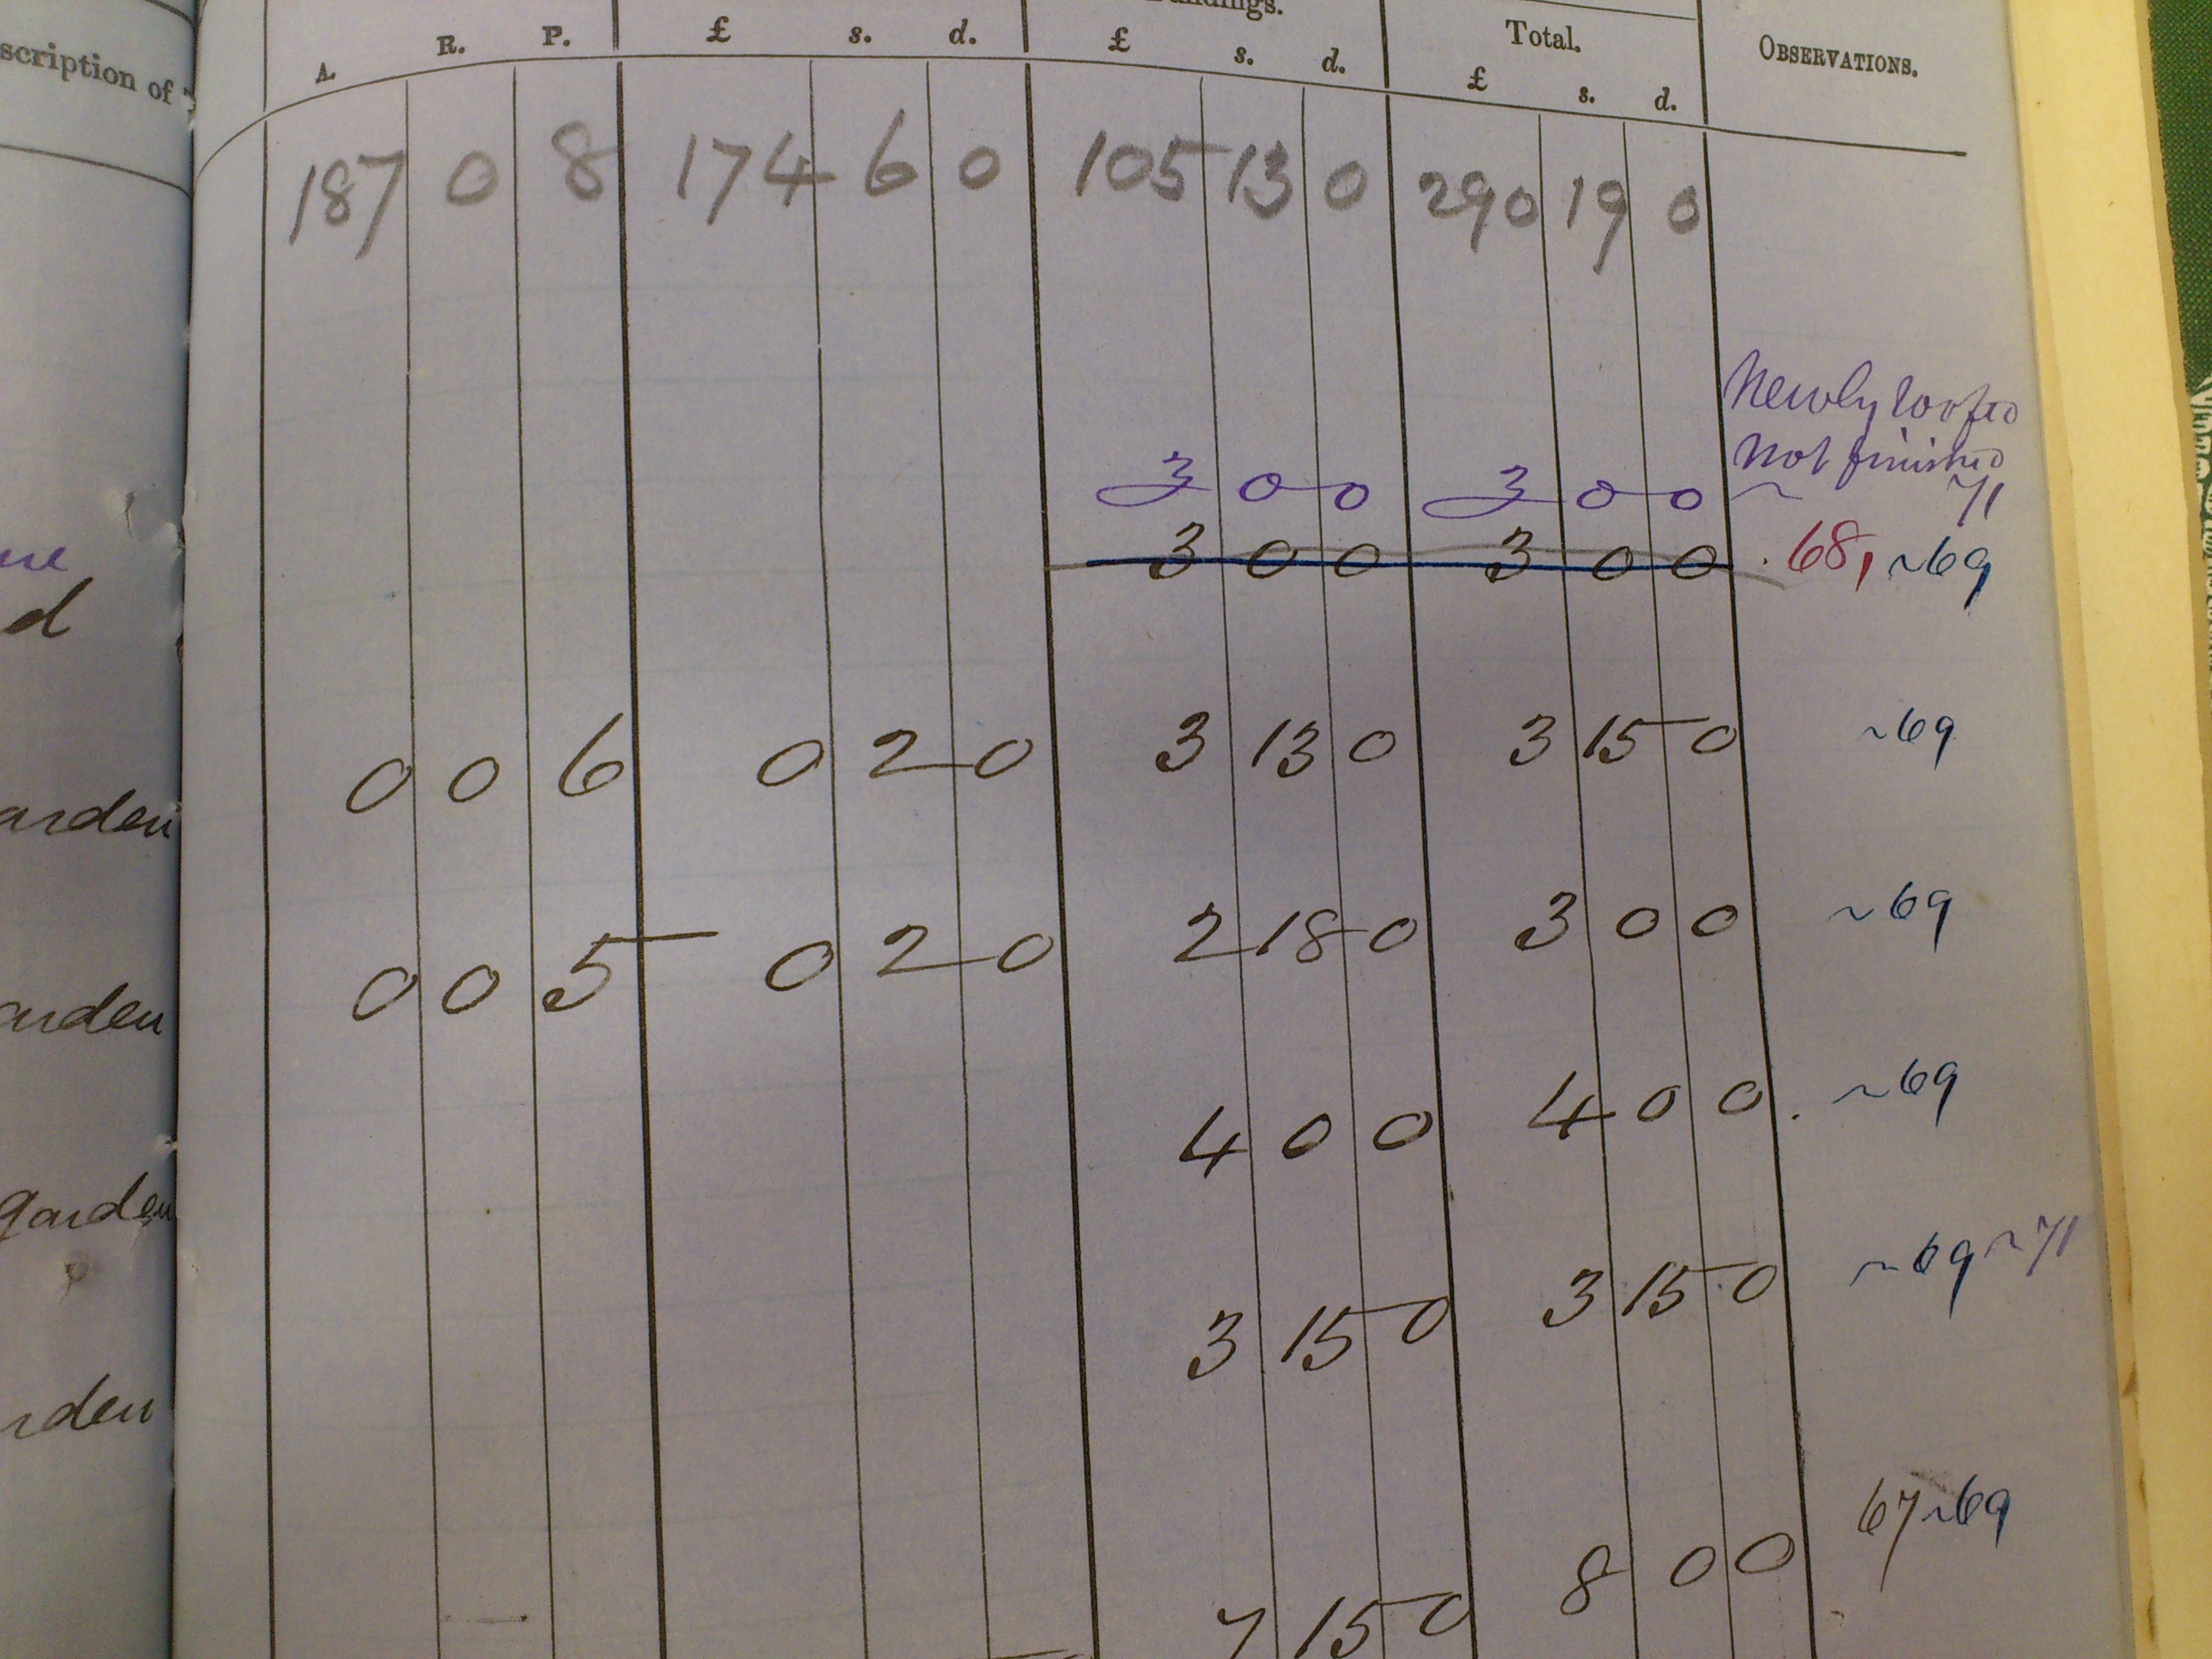 scription of
A. R. P. £ s. d. £ s. d. Total. £ s. d. OBSERVATIONS.
187 0 8 174 6 0 105 13 0 290 19 0
Newly roofed
Not finished
3 0 0 3 0 0 ~ 71
3 0 0 3 0 0 . 68, ~69
d
0 0 6 0 2 0 3 13 0 3 15 0 ~69
arden
0 0 5 0 2 0 2 18 0 3 0 0 ~69
arden
4 0 0 4 0 0 . ~69
garden
3 15 0 3 15 0 ~69 ~71
rden
7 15 0 8 0 0 67 ~69